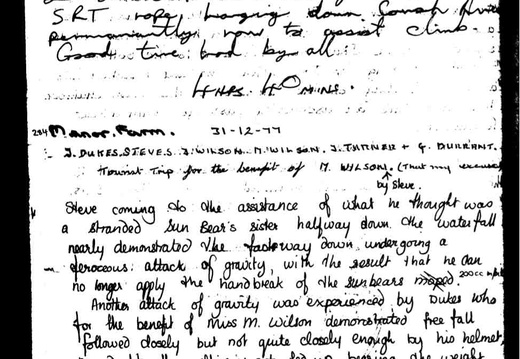 S.R.T. rope, hanging down
permanently now to assist climb.
Good time had by all.
4HRS. 40 MINS.
234 Manor Farm. 31-12-77
J. DUKES, STEVE S. J. WILSON. M. WILSON. J. TANNER + G. DURRANT.
Tourist Trip for the benefit of M. WILSON. (That my excuse)
by Steve.
Steve coming to the assistance of what he thought was
a stranded Sun Bear's sister halfway down the waterfall
nearly demonstrated the fast way down, undergoing a
ferocious attack of gravity, with the result that he can
no longer apply the handbreak of the sunbears moped. 200cc
Another attack of gravity was experienced by Dukes who
for the benefit of Miss M. Wilson demonstrated free fall
followed closely but not quite closely enough by his helmet,